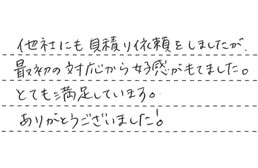 他社にも見積り依頼をしましたが、
最初の対応から好感がもてました。
とても満足しています。
ありがとうございました!